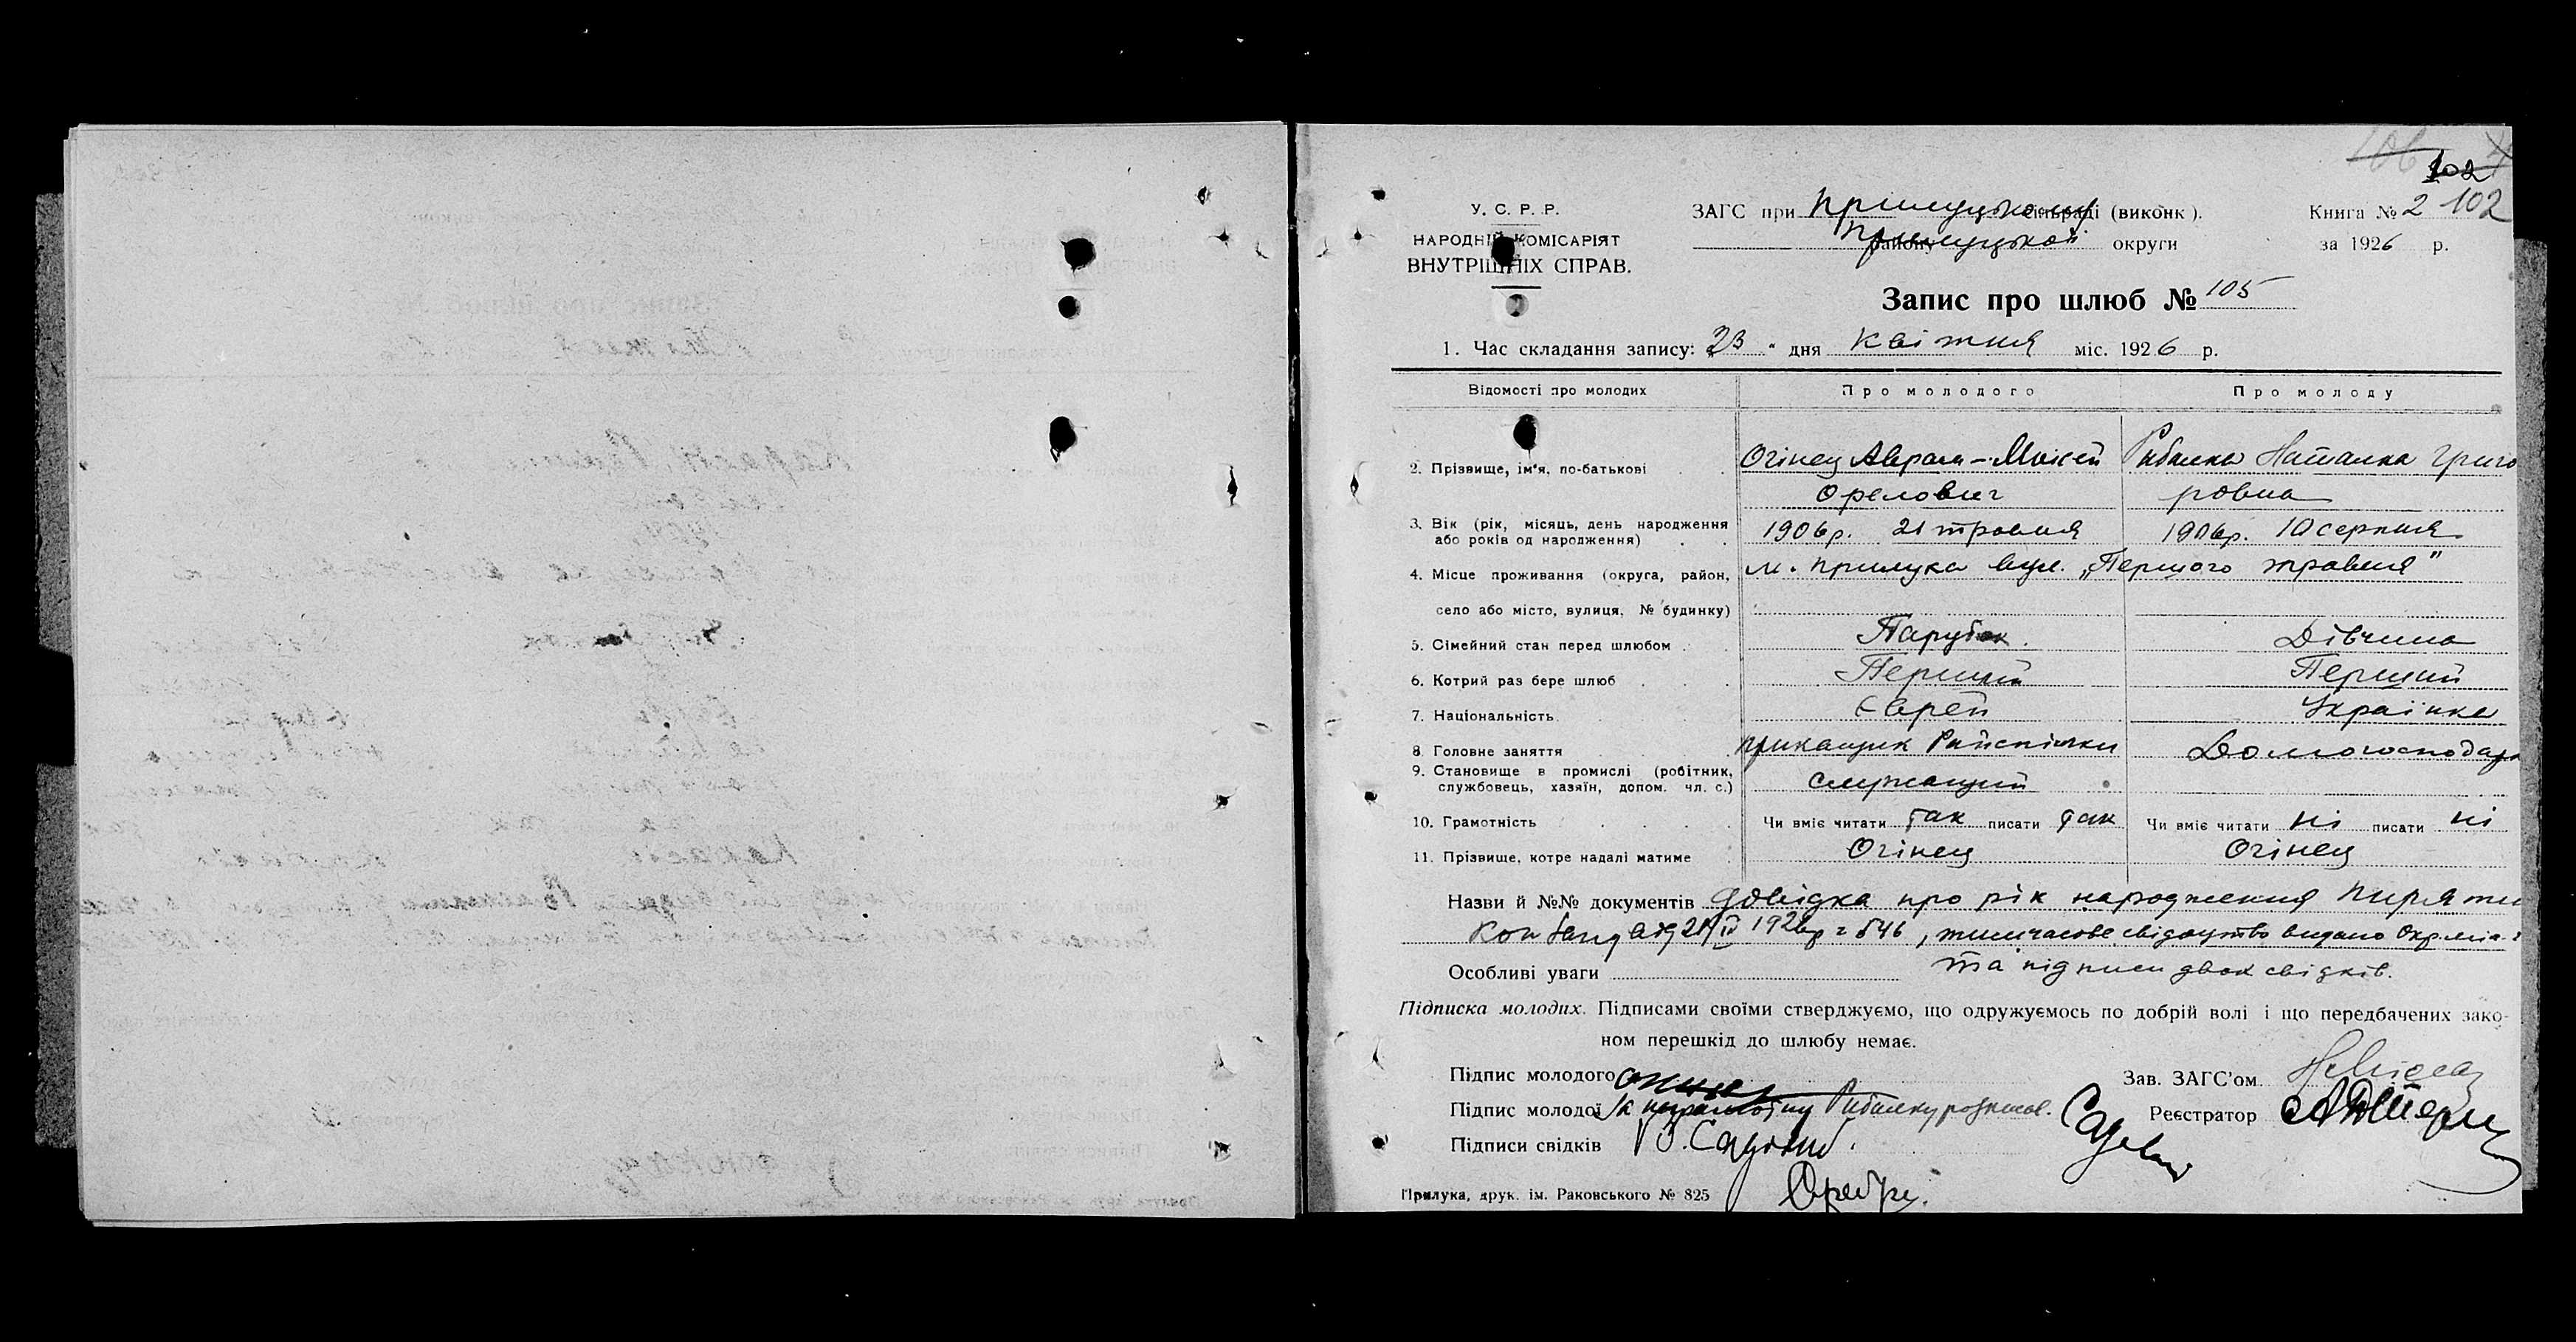 102
У. С. Р. Р.
НАРОДНІЙ КОМІСАРІЯТ
ВНУТРІШНІХ СПРАВ.
ЗАГС при Прилуцькому сільраді (виконк).
району Прилуцької округи
Книга № 2 102
за 1926 р.
Запис про шлюб № 105
1. Час складання запису: „23" дня Квітня міс. 1926 р.
Відомості про молодих Про молодого Про молоду
2. Прізвище, ім'я, по-батькові Огінец Аврам-Мокей Рибалка Наталка Григо
Орелович ровна
3. Вік (рік, місяць, день народження
або років од народження) 1906р. 21 травня 1906р. 10 серпня
4. Місце проживання (округа, район, м. Прилука вул. „Першого травня"
село або місто, вулиця, № будинку)
5. Сімейний стан перед шлюбом Парубок. Дівчина
6. Котрий раз бере шлюб Перший Перший
7. Національність Єврей Українка
8. Головне заняття прикащик Райспілки Домогосподар
9. Становище в промислі (робітник,
службовець, хазяїн, допом. чл. с.) служащий
10. Грамотність Чи вміє читати так писати так Чи вміє читати ні писати ні
11. Прізвище, котре надалі матиме Огінец Огінец
Назви й №№ документів Довідка про рік народження Пиряти
від 21/IV 1926р , тимчасове свідоцтво видано
Особливі уваги та підписи двох свідків.
Підписка молодих. Підписами своїми стверджуємо, що одружуємось по добрій волі і що передбачених зако-
ном перешкід до шлюбу немає.
Підпис молодого
Зав. ЗАГС'ом
Підпис молодої За неграмотну Рибалку розписав.
Реєстратор
Підписи свідків
Прилука, друк. ім. Раковського № 825